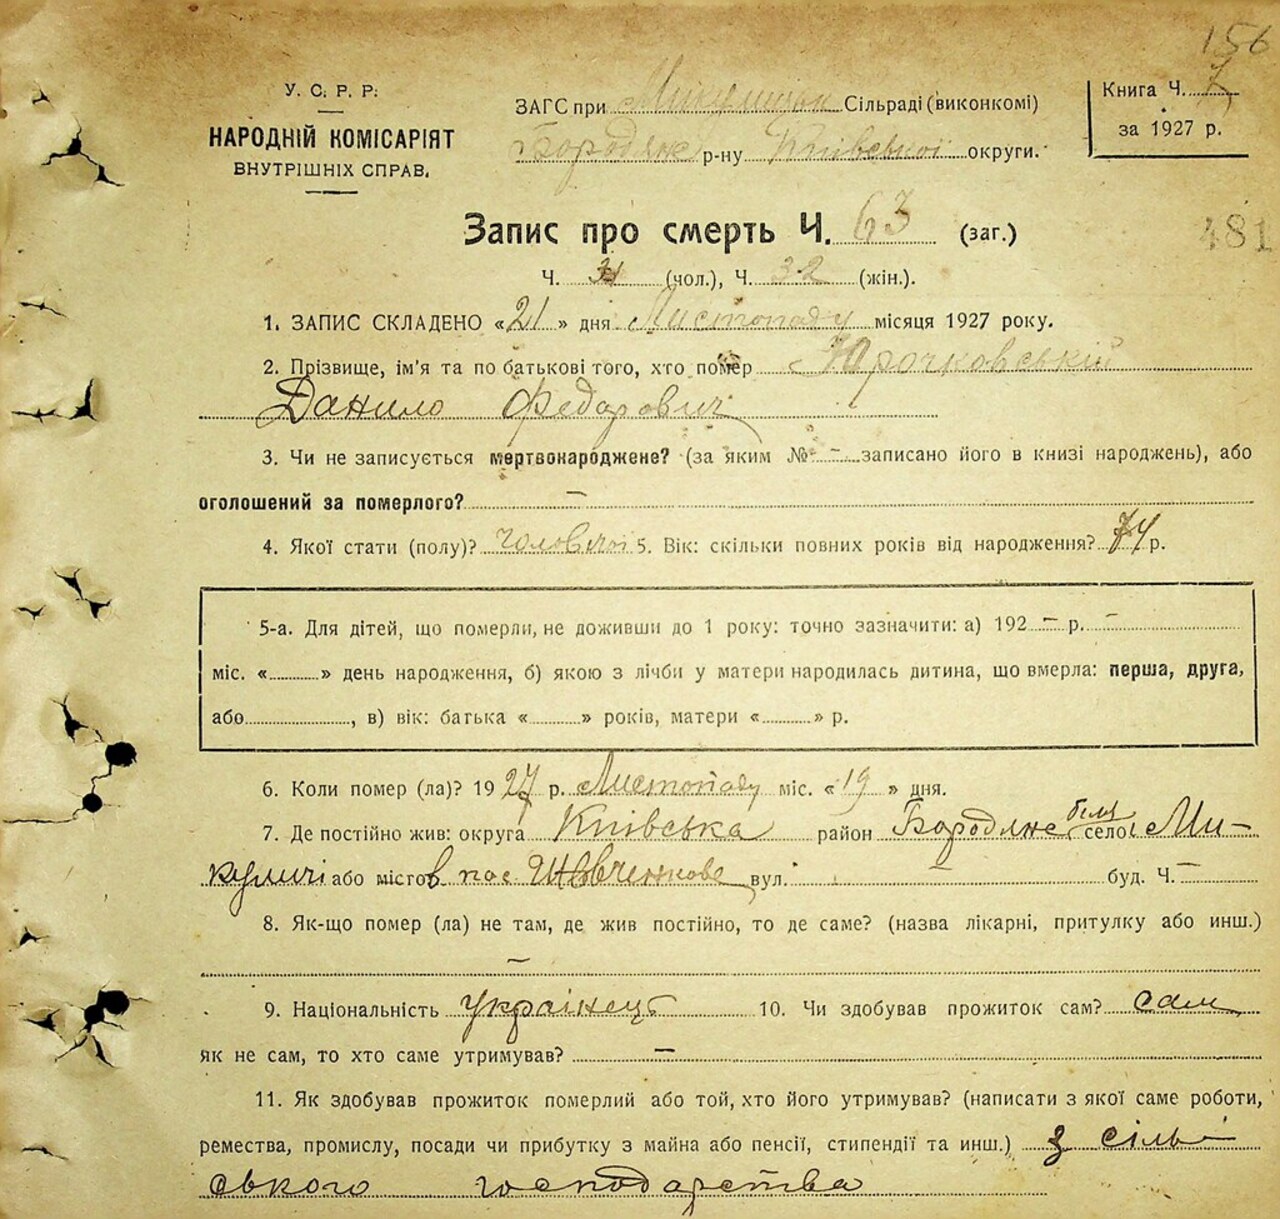 156
У. С. Р. Р.
НАРОДНІЙ КОМІСАРІЯТ
ВНУТРІШНІХ СПРАВ.
ЗАГС при Микулицькі Сільраді (виконкомі)
Бородянс р-ну Київської округи.
Книга Ч. 7
за 1927 р.
Запис про смерть Ч. 63 (заг.)
481
Ч. 31 (чол.), Ч. 32 (жін.).
1. ЗАПИС СКЛАДЕНО «21» дня Листопаду місяця 1927 року.
2. Прізвище, ім'я та по батькові того, хто помер Юрочковській
Данило Федорович
3. Чи не записується мертвонароджене? (за яким № – записано його в книзі народжень), або
оголошений за померлого? –
4. Якої стати (полу)? чоловічої 5. Вік: скільки повних років від народження? 74 р.
5-а. Для дітей, що померли, не доживши до 1 року: точно зазначити: а) 192 – р. –
міс. «......» день народження, б) якою з лічби у матери народилась дитина, що вмерла: перша, друга,
або............, в) вік: батька «......» років, матери «......» р.
6. Коли помер (ла)? 1927 р. Листопаду міс. «19» дня.
7. Де постійно жив: округа Київська район Бородянс біля село Ми-
куличі або місто в пос Шевченкове вул. – буд. Ч. –
8. Як-що помер (ла) не там, де жив постійно, то де саме? (назва лікарні, притулку або инш.)
–
9. Національність Українець 10. Чи здобував прожиток сам? сам
як не сам, то хто саме утримував? –
11. Як здобував прожиток померлий або той, хто його утримував? (написати з якої саме роботи,
ремества, промислу, посади чи прибутку з майна або пенсії, стипендії та инш.) з сіль-
ського господарства